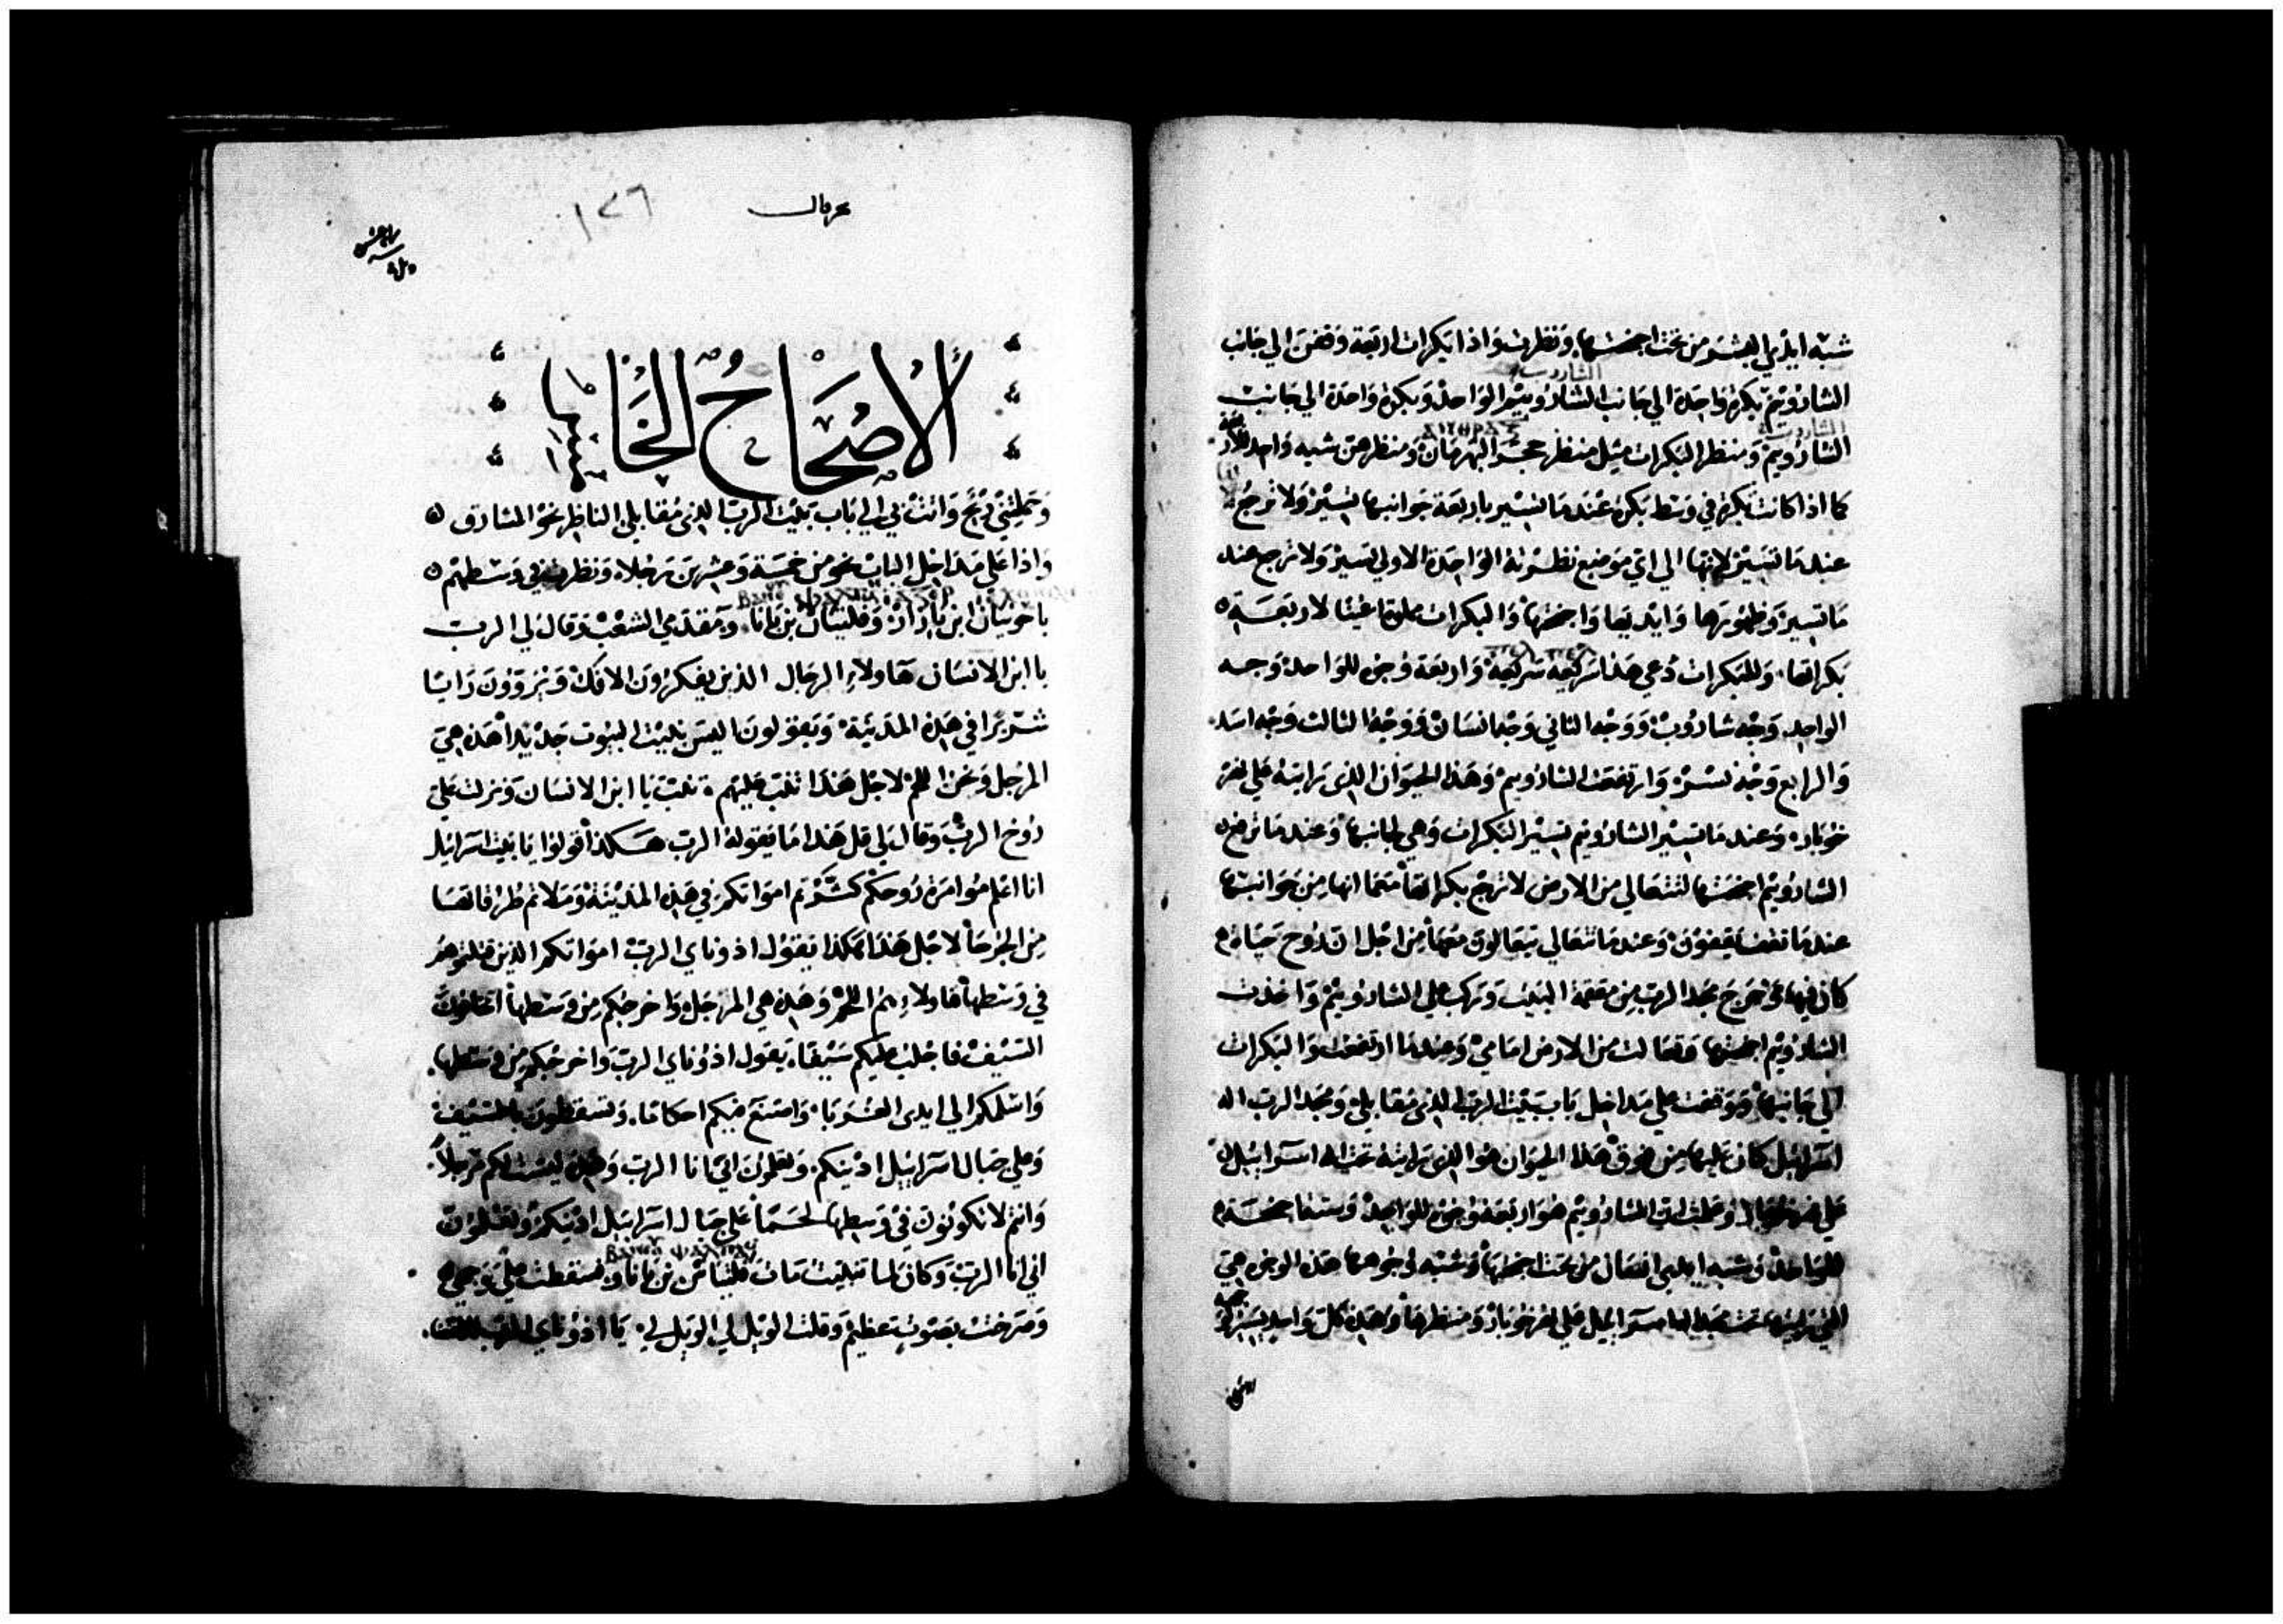 شبه ايدي البشر من تحت اجنحتها. ونظرت واذا بكرات اربعة وقفن الي جانب
الشاروب
الشاروبيم بكرة واحدة الي جانب الشاروبيم الواحد وبكرة واحدة الي جانب
الشاروب
الشاروبيم ومنظر البكرات مثل منظر حجر البهرمان ومنظرهن شبه واحد
كما اذا كانت بكرة في وسط بكرة عندما تسير باربعة جوانبها تسير ولا ترجع
عندما تسير لانها الي اي موضع نظرته الواحدة الاولي تسير ولا ترجع عند
ما تسير وظهورها وايديها واجنحتها والبكرات عينا لاربعة
بكراتها. وللبكرات دعي هذا سريعه سريعة واربعة وجوه للواحد وجه
الواحد وجه شاروب ووجه الثاني وجه انسان ووجه الثالث وجه اسد
والرابع وجه نسر وارتفعت الشاروبيم وهذا الحيوان الذي رايته علي نهر
خوبار وعندما تسير الشاروبيم تسير البكرات وهي لجانبها وعندما ترفع
الشاروبيم اجنحتها لتتعالي من الارض لا ترجع بكراتها معما انها من جوانبها
عندما تقف يقفون وعندما تتعالي يتعالون معها من اجل ان روح حياة
كان فيها وخرج مجد الرب من البيت وركب علي الشاروبيم واخذت
الشاروبيم اجنحتها وتعالت من الارض امامي وعندما ارتفعت والبكرات
الي جانبها ووقفت علي مداخل باب بيت الرب الذي مقابلي ومجد الرب اله
اسرائيل كان عليها من فوق هذا الحيوان هو الذي رايته تحت اله اسرائيل
علي نهر خوبار وعلمت ان الشاروبيم هو اربعة وجوه للواحد وستة اجنحة
للواحد وشبه ايدي انسان من تحت اجنحتها وشبه وجوهها هذه الوجوه هي
التي رايتها تحت مجد اله اسرائيل علي نهر خوبار ومنظرها وهذه كل واحد يسير
حزقيال
١٤٦
الاصحاح الخامس
وحملتني ريح واتت بي الي باب بيت الرب الذي مقابلي الناظر نحو المشارق
واذا علي مداخل الباب نحو من خمسة وعشرين رجلا ونظرت في وسطهم
ياخونيان ابن يازار وفلتيان بن بانا. ومقدمي الشعب وقال لي الرب
يا ابن الانسان هاولاء الرجال الذين يفكرون الافك ويروون رايا
شريرا في هذه المدينة ويقولون اليس بنيت البيوت جديدا هذه هي
المرجل ونحن اللحم لاجل هذا تنب عليهم تنب يا ابن الانسان ونزلت علي
روح الرب وقال لي قل هذا ما يقوله الرب هكذا قولوا يا بيت اسرائيل
انا اعلم موامرة روحكم كثرتم امواتكم في هذه المدينة وملاتم طرقاتها
من الجرحا لاجل هذا هكذا يقول ادوناي الرب امواتكم الذين قتلتموهم
في وسطها هاولاء هم اللحم وهذه هي المرجل واخرجكم من وسطها اتخافون
السيف فاجلب عليكم سيفا. يقول ادوناي الرب واخرجكم من وسطها.
واسلمكم الي ايدي الغربا واصنع فيكم احكاما. وتسقطون بالسيف
وعلي جبال اسرائيل ادينكم وتعلمون اني انا الرب وهذه ليست لكم مرجلا
وانتم لا تكونون في وسطها لحما علي جبال اسرائيل ادينكم وتعلمون
اني انا الرب وكان لما تنبيت مات فلتيان بن بانا وسقطت علي وجهي
وصرخت بصوت عظيم وقلت الويل لي الويل لي يا ادوناي الرب